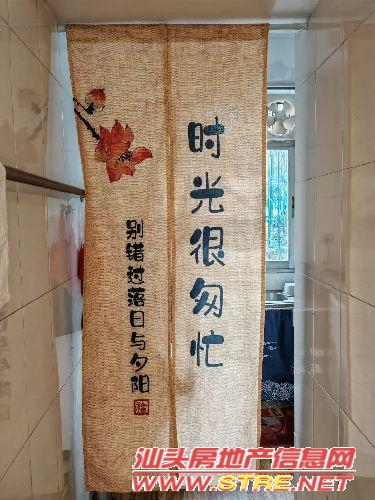 时光很匆忙
别错过落日与夕阳
汕头房地产信息网
WWW.STRE.NET